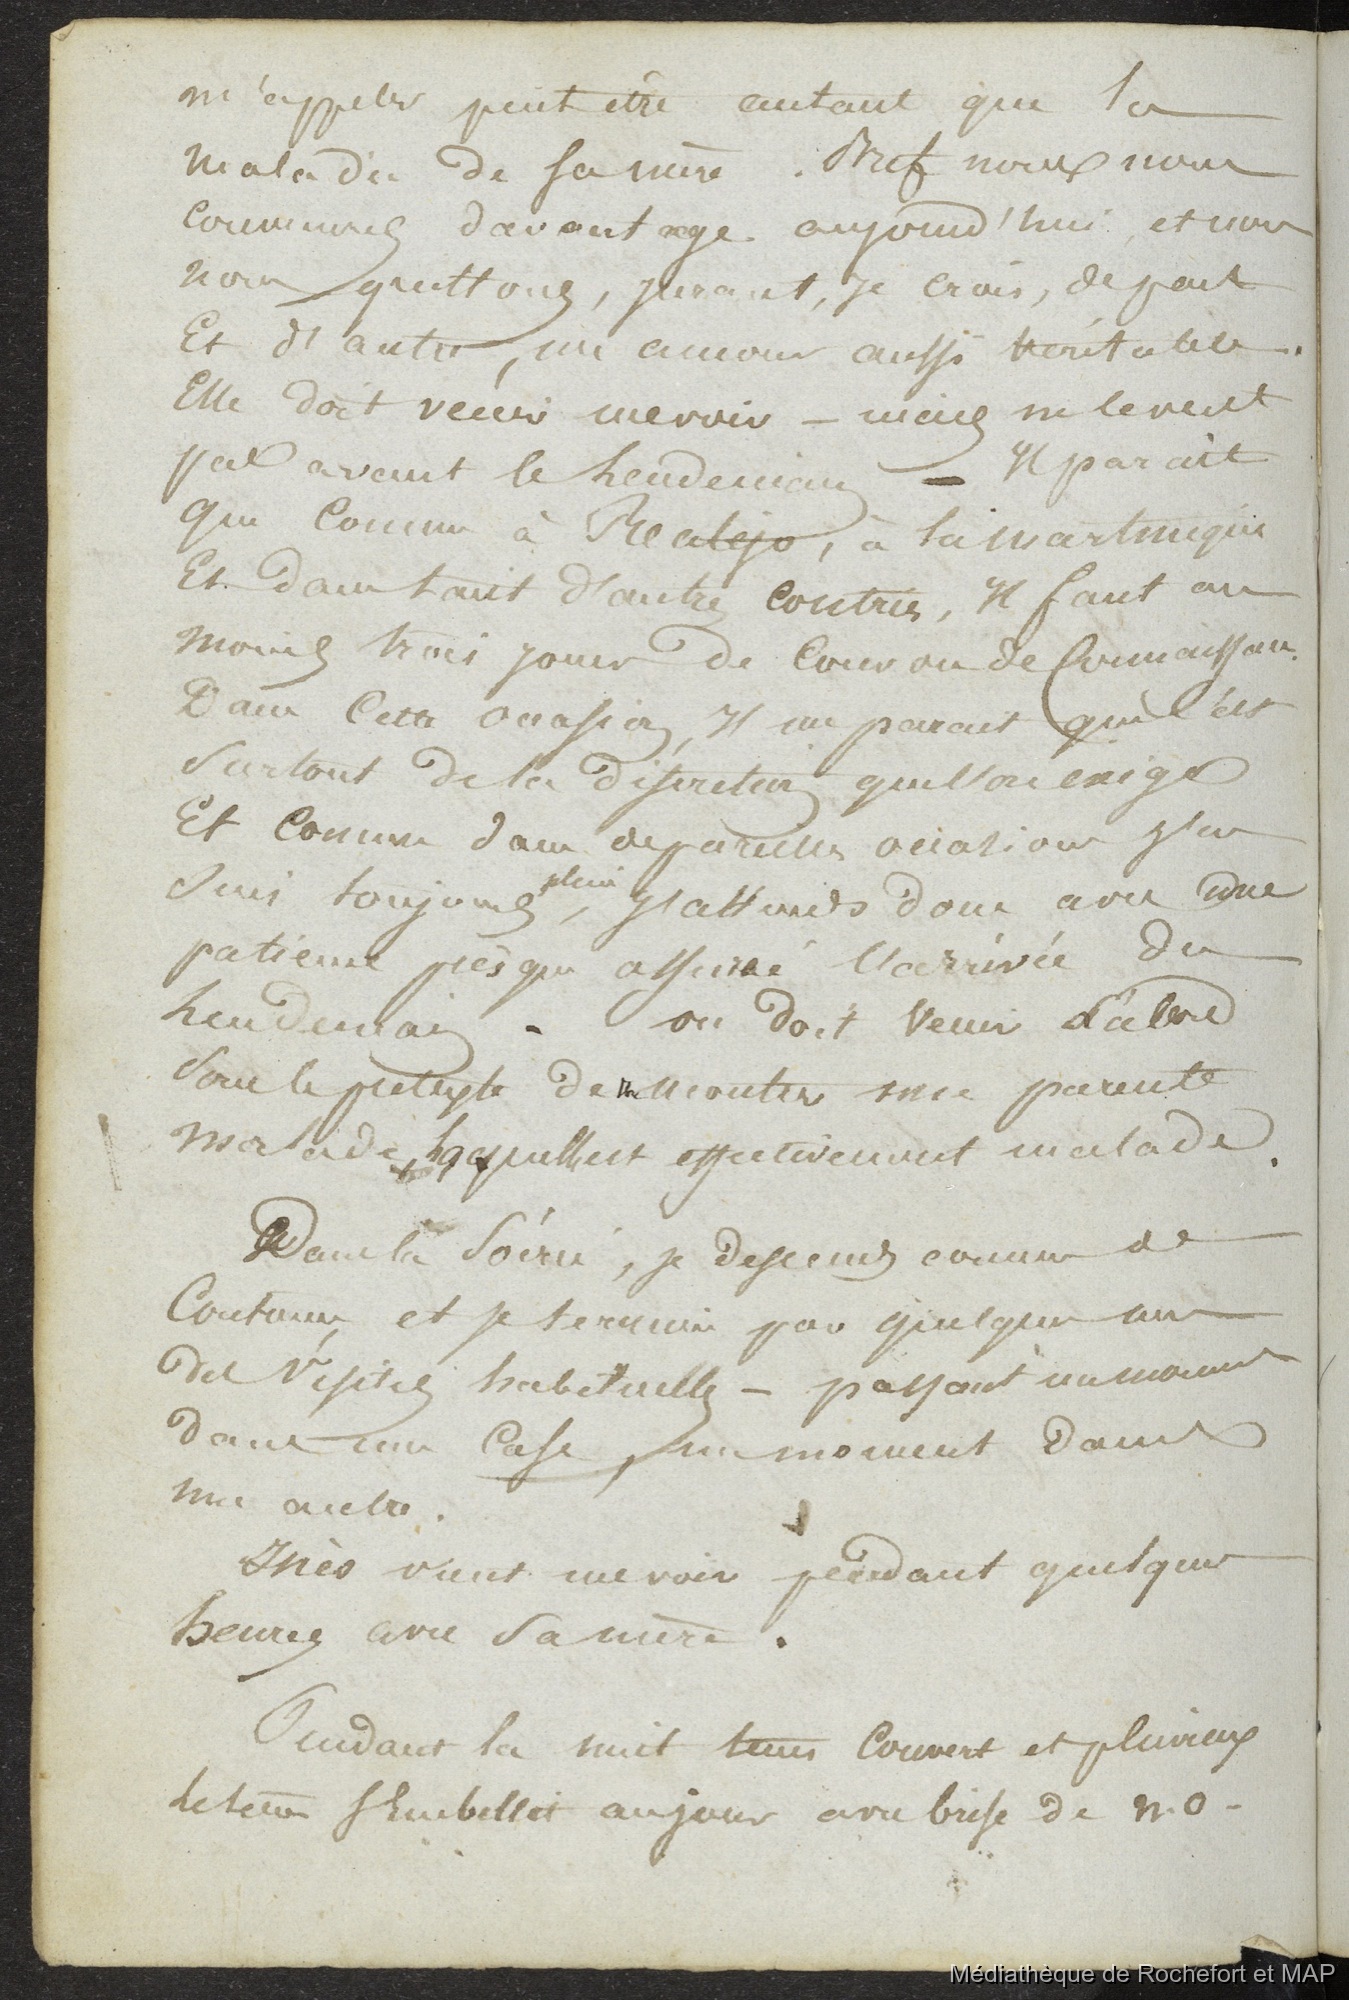 m'appeler peut être autant que la
maladie de sa mère. Bref nous nous
connumes davantage aujourd'hui, et nous
nous quittons, jurant, je crois, de part
Et d'autre, un amour aussi véritable.
Elle doit venir me voir – mais ne le veut
pas avant le lendemain – Il parait
que comme à Realejo, à la martinique
Et dans tant d'autres contrées, Il faut au
moins trois jours de Cour ou de Connaissan.
Dans Cette occasion, Il me parait que c'est
surtout de la discretion que l'on exige
Et comme dans de pareilles occasions j'en
suis toujours plein, J'attends donc avec une
patience presque assurée l'arrivée du
lendemain - on doit venir d'abord
sous le pretexte de me montrer une parente
malade, laquelle est effectivement malade.
Dans la Soirée, je descends comme de
Coutume, et je termine par quelques unes
des Visites habituelles – passant un moment
dans une Case, un moment dans
une autre.
Inès vient me voir pendant quelques
heures avec sa mère.
Pendant la nuit tems Couvert et pluvieux
le tems S'Embellit au jour avec brise de N.O-
Médiathèque de Rochefort et MAP